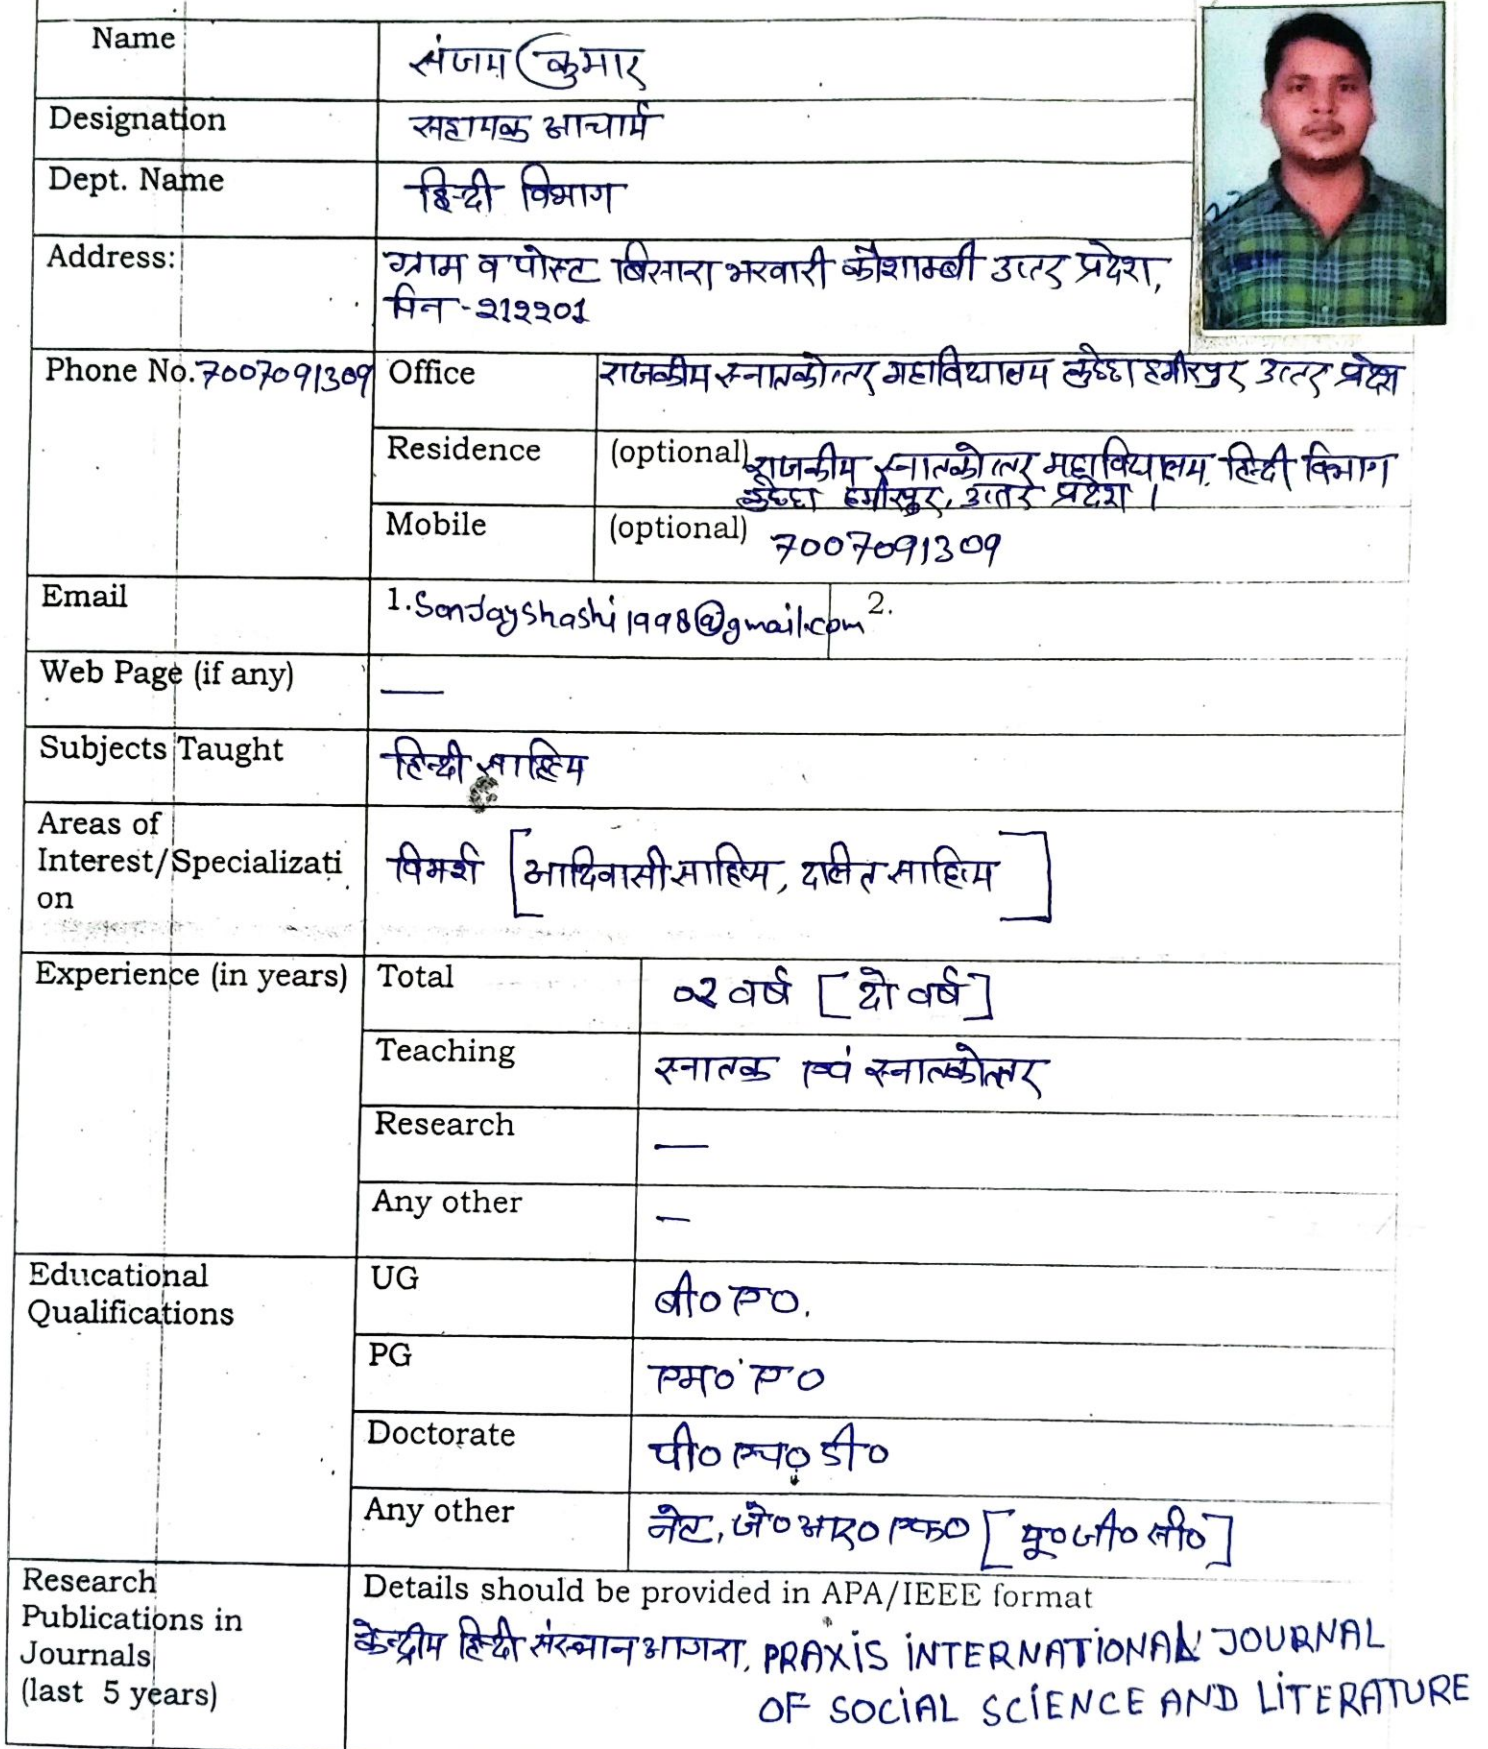 Name संजय कुमार
Designation सहायक आचार्य
Dept. Name हिन्दी विभाग
Address: ग्राम व पोस्ट बिसारा भरवारी कौशाम्बी उत्तर प्रदेश,
पिन-212201
Phone No. 7007091309 Office राजकीय स्नातकोत्तर महाविद्यालय कुछेछा हमीरपुर उत्तर प्रदेश
Residence (optional) राजकीय स्नातकोत्तर महाविद्यालय, हिन्दी विभाग
कुछेछा हमीरपुर, उत्तर प्रदेश ।
Mobile (optional) 7007091309
Email 1. Sanjayshashi1998@gmail.com 2.
Web Page (if any) —
Subjects Taught हिन्दी साहित्य
Areas of
Interest/Specializati विमर्श [आदिवासी साहित्य, दलित साहित्य]
on
Experience (in years) Total 02 वर्ष [दो वर्ष]
Teaching स्नातक एवं स्नातकोत्तर
Research —
Any other –
Educational UG बी० ए०.
Qualifications
PG एम० ए०
Doctorate पी० एच० डी०
Any other नेट, जे० आर० एफ० [यू० जी० सी०]
Research Details should be provided in APA/IEEE format
Publications in केन्द्रीय हिन्दी संस्थान आगरा, PRAXIS INTERNATIONAL JOURNAL
Journals
(last 5 years) OF SOCIAL SCIENCE AND LITERATURE